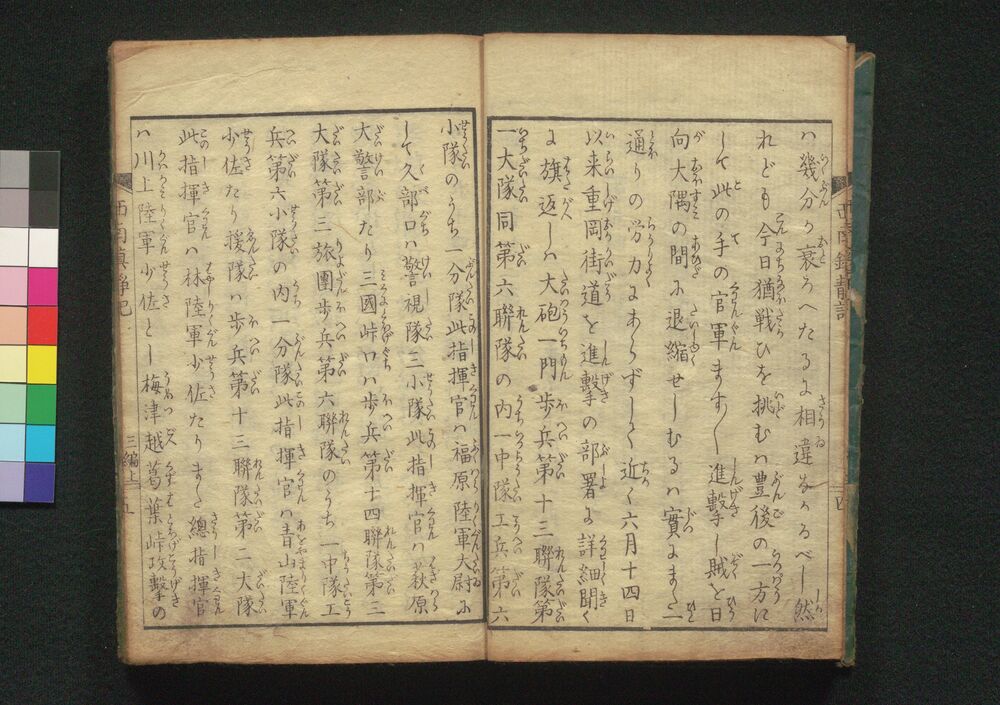 ハ幾分か衰ろへたるよ相違なかるべし然
れども今日猶戦ひを挑むハ豊後の一方に
して此の手の官軍ます〳〵進撃し賊を日
向大隅の間に退縮せしむるハ實にまた一
通りの労力にあらずしく近く六月十四日
以来重岡街道を進撃の部署よ詳細聞く
に旗返しハ大砲一門歩兵第十三聯隊第
一大隊同第六聯隊の内一中隊工兵第六
小隊のうち一分隊此指揮官ハ福原陸軍大尉に
して久部口ハ警視隊三小隊此指揮官ハ萩原
大警部たり三國峠口ハ歩兵第十四聯隊第三
大隊第三旅團歩兵第六聯隊のうち一中隊工
兵第六小隊の内一分隊此指揮官ハ青山陸軍
少佐たり援隊ハ歩兵第十三聯隊第二大隊
此指揮官ハ林陸軍少佐たりまた總指揮官
ハ川上陸軍少佐とし梅津越葛葉峠攻撃の
三編上